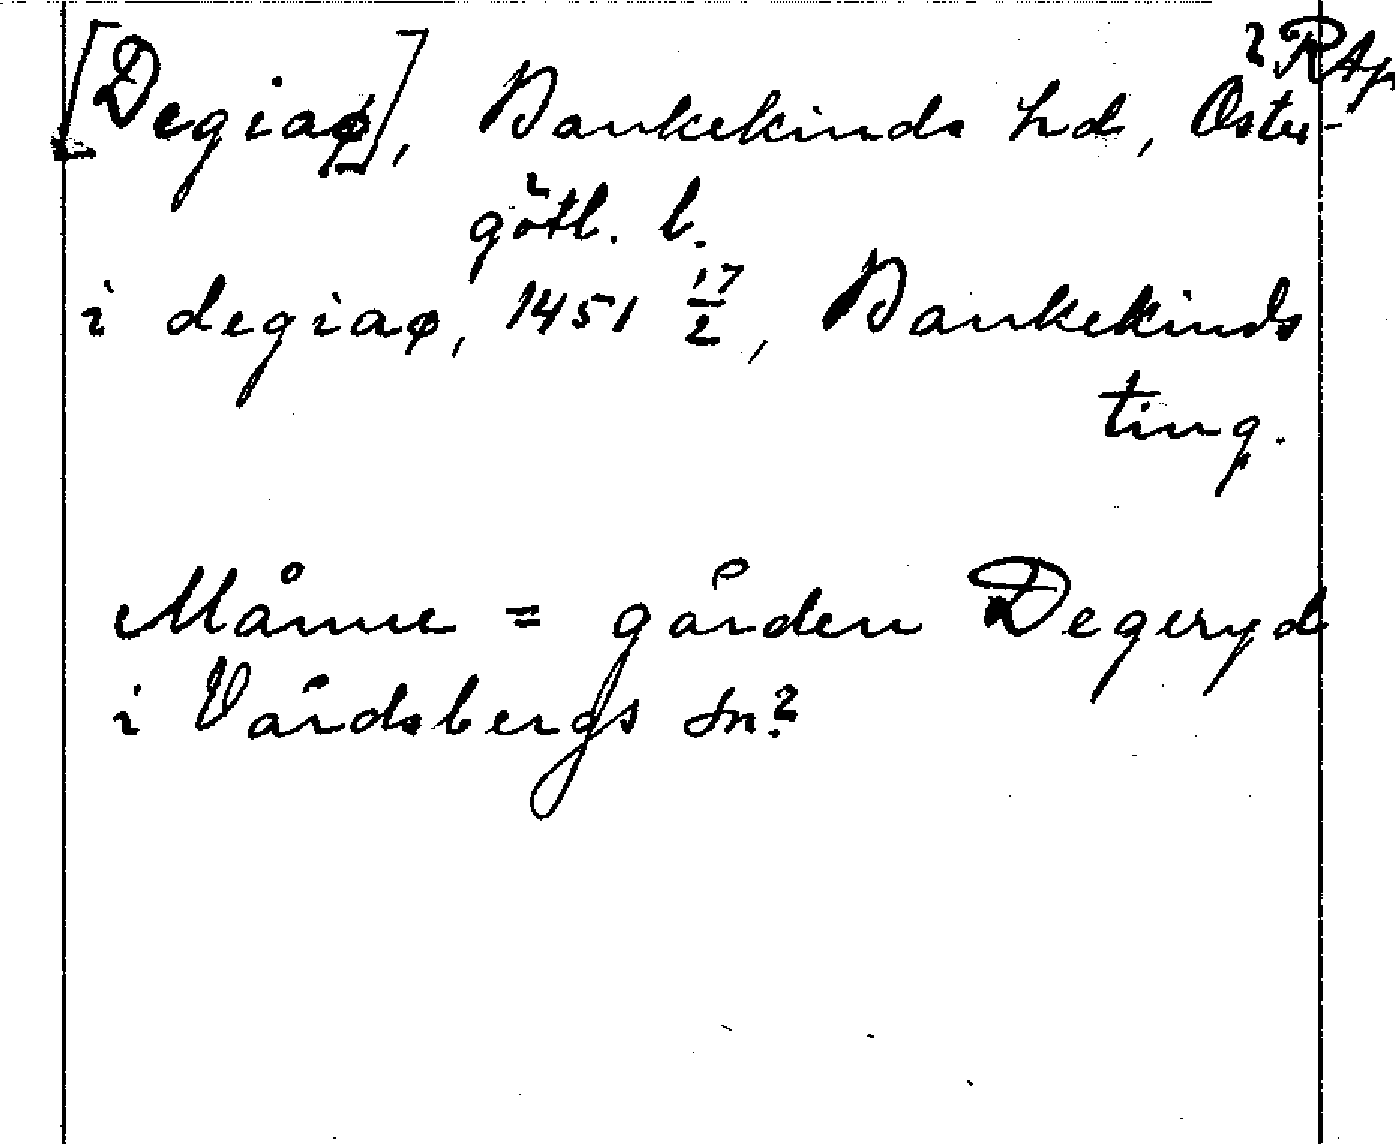 RAp
[Degiaø], Bankekinds hd, Öster-
götl. l.
i degiaø, 1451 17/2, Bankekinds
ting.
Månne = gården Degeryd
i Vårdsbergs sn?